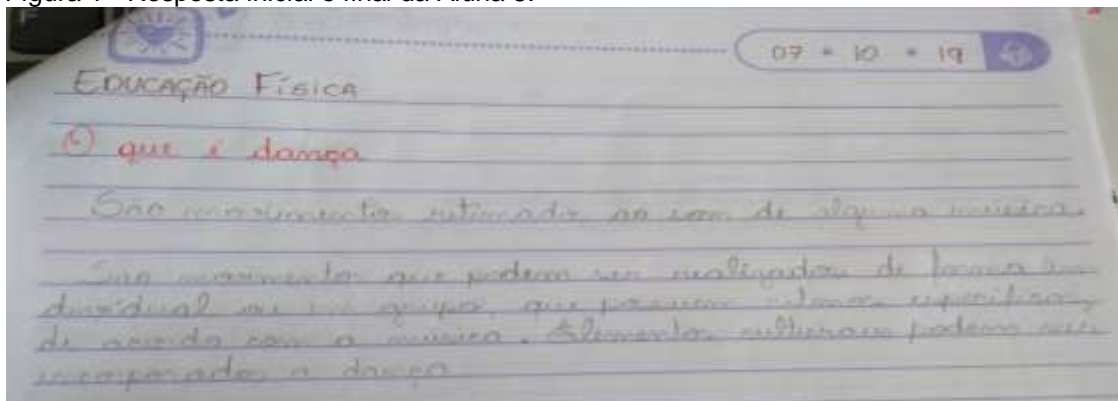 Figura 1 - Resposta inicial e final da Aluna
07 • 10 • 19
EDUCAÇÃO FÍSICA
O que é dança
São movimentos ritmados ao som de alguma música.
São movimentos que podem ser realizados de forma in
dividual ou em grupo, que possuem ritmos específicos,
de acordo com a música. Elementos culturais podem ser
incorporados a dança